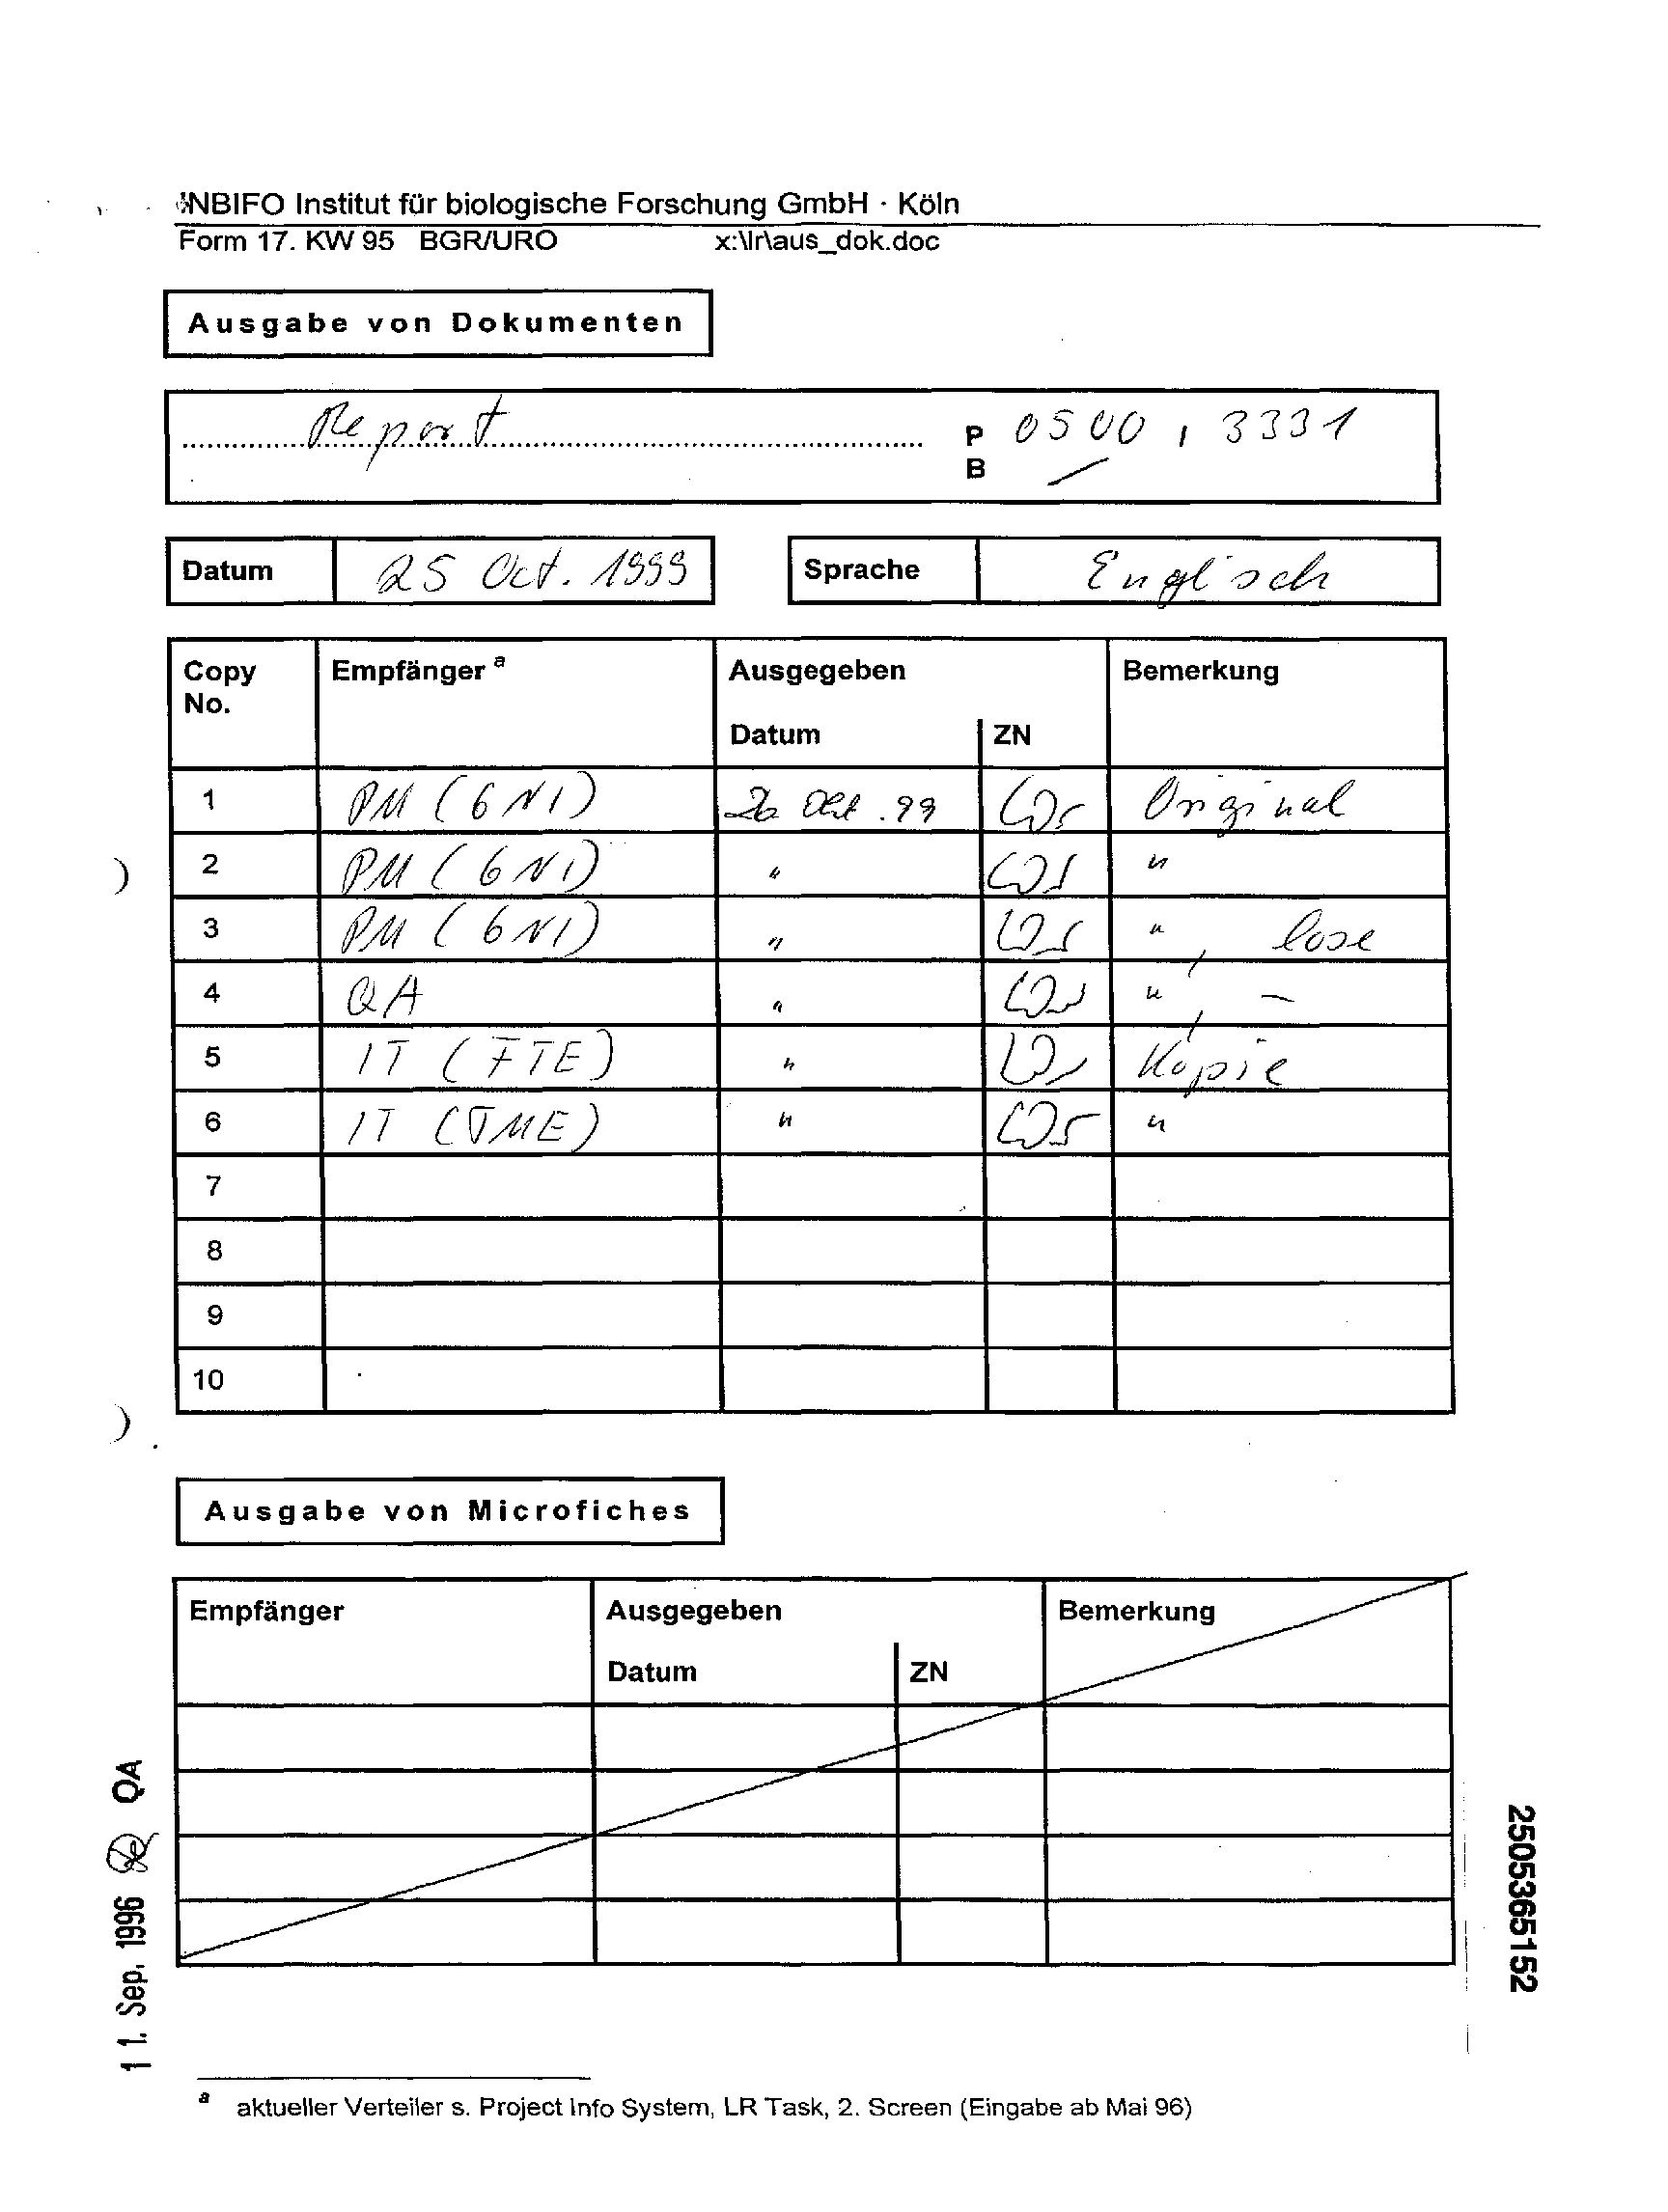 INBIFO Institut für biologische Forschung GmbH · Köln
Form 17. KW 95 BGR/URO x:\lr\aus_dok.doc
Ausgabe von Dokumenten
Report P 0500 , 3331
B /
Datum 25 Oct. 1999 Sprache Englisch
Copy No. Empfänger a Ausgegeben Bemerkung
Datum ZN
1 PM (GNI) Okt. 99 Original
2 PM (GNI) " "
3 PM (GNI) " ", lose
4 QA " ", –
5 IT (FTE) " Kopie
6 IT (TME) " "
7
8
9
10
Ausgabe von Microfiches
Empfänger Ausgegeben Bemerkung
Datum ZN
11. Sep. 1996 QA
2505365152
a aktueller Verteiler s. Project Info System, LR Task, 2. Screen (Eingabe ab Mai 96)